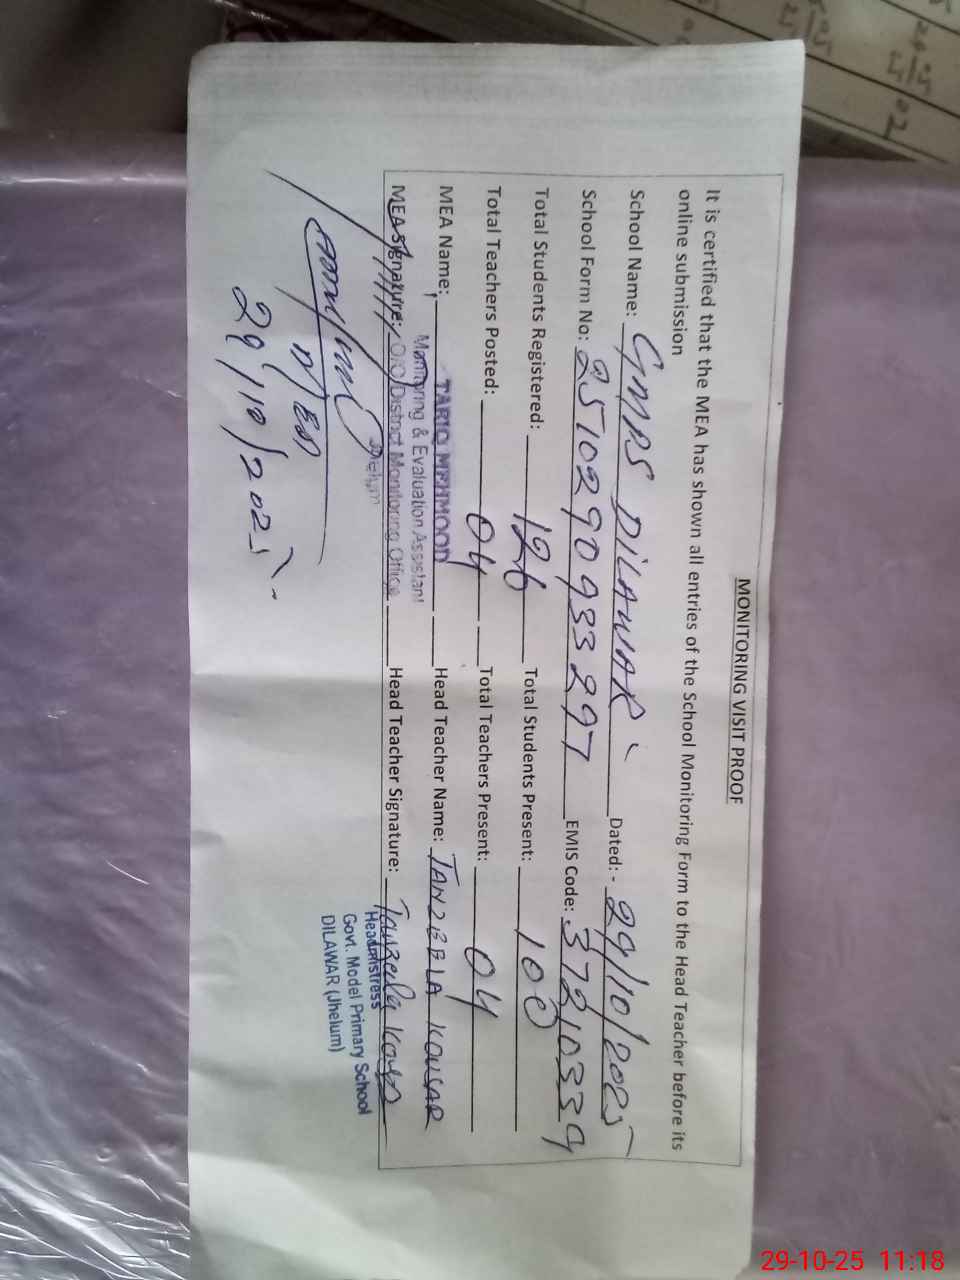 MONITORING VISIT PROOF
It is certified that the MEA has shown all entries of the School Monitoring Form to the Head Teacher before its
online submission
School Name: GMPS DILAWAR Dated:- 29/10/2025
School Form No: 2510290933297 EMIS Code: 37210339
Total Students Registered: 126 Total Students Present: 100
Total Teachers Posted: 04 Total Teachers Present: 04
MEA Name: TARIQ MEHMOOD Head Teacher Name: TANZEELA KOUSAR
Monitoring & Evaluation Assistant
MEA Signature: O/O District Monitoring Office Head Teacher Signature: Tanzeela Kousar
Jhelum
Headmistress
Govt. Model Primary School
DILAWAR (Jhelum)
29/10/2025
29-10-25 11:18